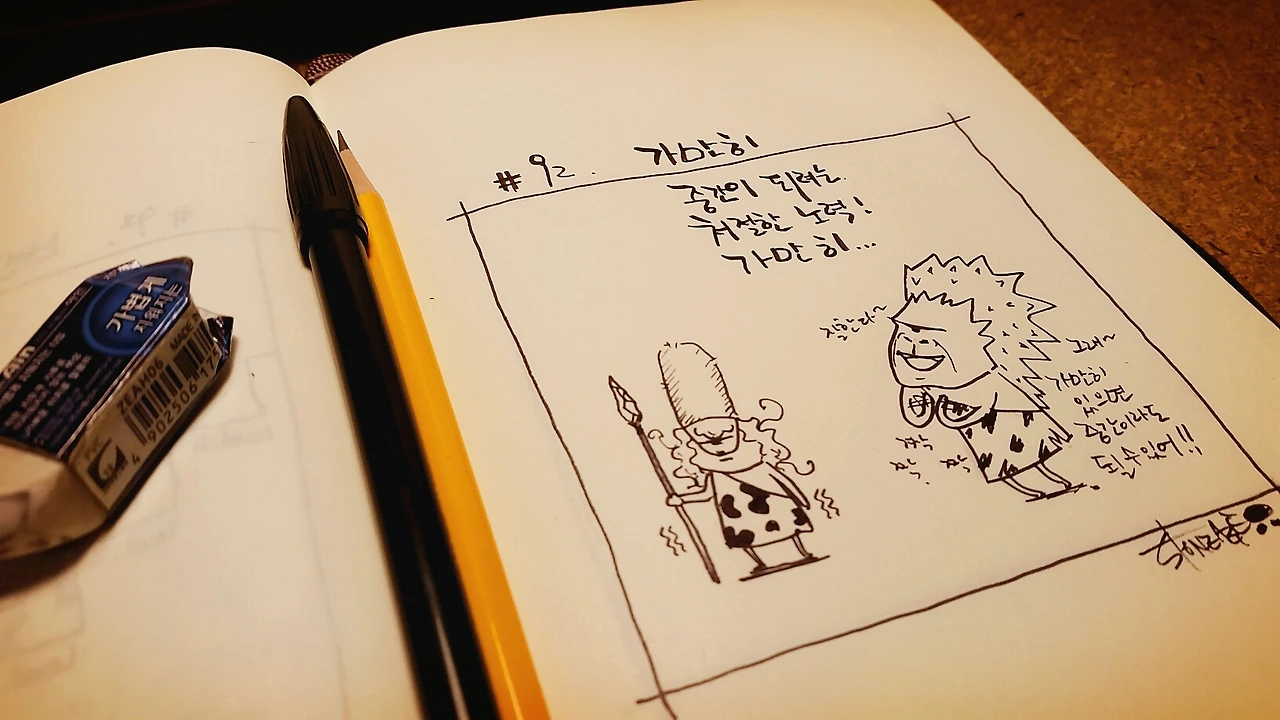 #92. 가만히
중간이 되려는
처절한 노력!
가만히...
잘한다~
그래~
가만히
있으면
중간이라도
될 수 있어!!
짝 짝
짝. 짝
가볍게
지워지는
ZEAH06
MADE IN